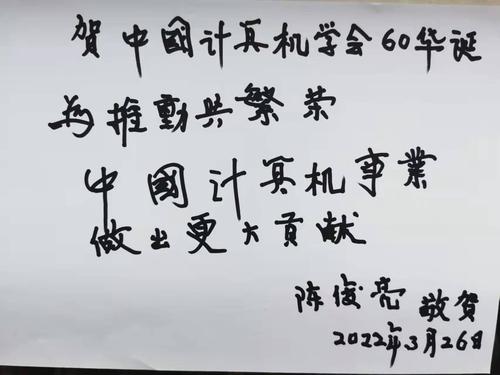 賀中國计算机学会60华诞
为推動共繁荣
中國计算机事業
做出更大貢献
陈俊亮 敬賀
2022年3月26日